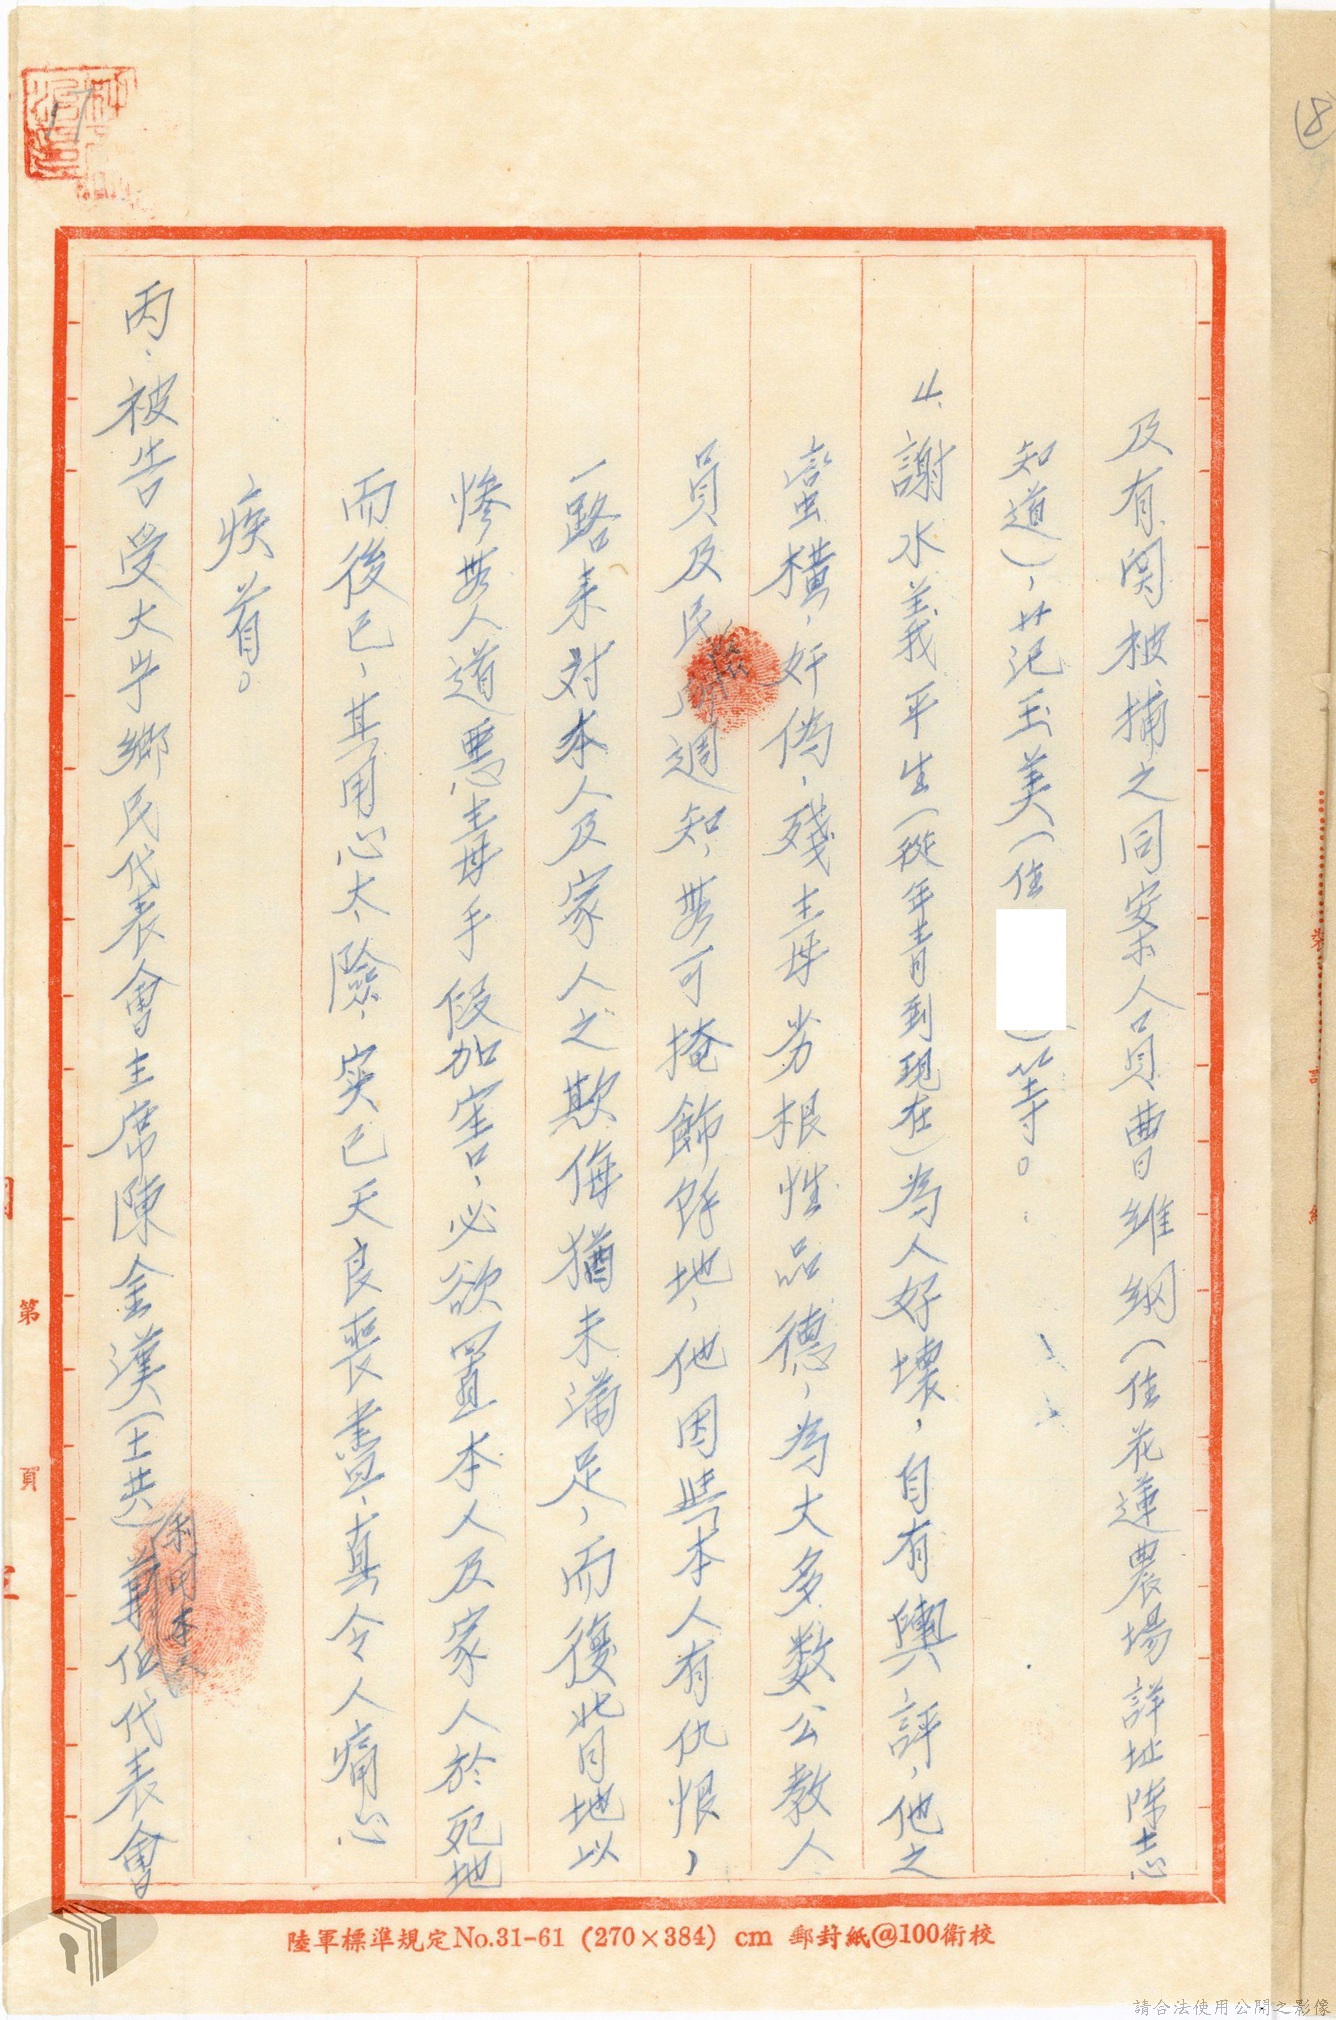 ⑧
17
及有関被捕之同案人員曹維綱(住花蓮農場詳址陳志
知道),范玉美(住 )等。
4、謝水義平生(從年青到現在)為人好壞,自有輿評,他之
蛮橫,奸偽,殘毒劣根性品德,為大多数公教人
員及民 週知,無可掩飾餘地,他因與本人有仇恨,
一路来対本人及家人之欺侮猶未満足,而後背地以
慘無人道悪毒手段加害,必欲置本人及家人於死地
而後已,其用心太險,实已天良喪盡,真令人痛心
疾首。
丙、被告受大芋鄉民代表會主席陳金漢(土共) 代表會
利用本人
第 頁
裝 訂 線
陸軍標準規定No.31-61 (270×384) cm 郵封紙@100衛校
請合法使用公開之影像